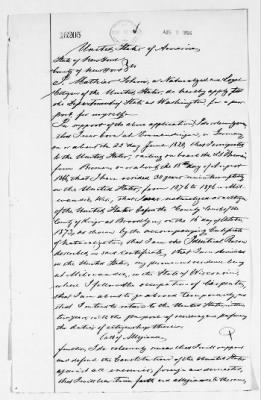 United States of America
State of New York
County of New York } ss
I, Matthias Schum, a Naturalized and Loyal
Citizen of the United States, do hereby apply to
the Department of State at Washington for a pass
port for myself.
In support of the above application, I do solemnly swear
that I was born at in Germany
on or about the 22 day June 1839, that I emigrated
to the United States, sailing on board the
from Bremen on or about the 15th day of August
186 that I have resided 20 years uninterruptedly
in the United States, from 1876 to 1896 in Mil-
waukee, Wis., that I was naturalized as a citizen
of the United States before the County Court of the
County of Kings at Brooklyn on the 18 day of October
1872, as shown by the accompanying Certificate
of Naturalization; that I am the Identical Person
described in said Certificate, that I am domiciled
in the United States, my permanent residence being
at Milwaukee, in the State of Wisconsin
where I follow the occupation of Carpenter,
that I am about to go abroad temporarily, and
that I intend to return to the United States, within
two years, with the purpose of residing and performing
the duties of citizenship therein.
Oath of Allegiance
Further, I do solemnly swear that I will support
and defend the Constitution of the United States
against all enemies, foreign and domestic,
that I will bear true faith and allegiance to the same,